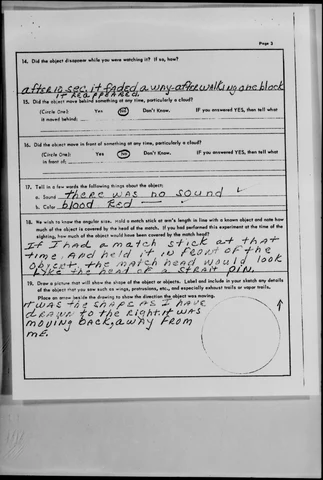 Page 3
14. Did the object disappear while you were watching it? If so, how?
after 10 sec. it faded away after walking one block
it reappeared.
15. Did the object move behind something at any time, particularly a cloud?
(Circle One): Yes No Don't Know. IF you answered YES, then tell what
it moved behind:
16. Did the object move in front of something at any time, particularly a cloud?
(Circle One): Yes No Don't Know. IF you answered YES, then tell what
in front of:
17. Tell in a few words the following things about the object:
a. Sound There was no sound
b. Color Blood Red
18. We wish to know the angular size. Hold a match stick at arm's length in line with a known object and note how
much of the object is covered by the head of the match. If you had performed this experiment at the time of the
sighting, how much of the object would have been covered by the match head?
If I had a match stick at that
time, and held it in front of the
object, the match head would look
like the head of a strait pin.
19. Draw a picture that will show the shape of the object or objects. Label and include in your sketch any details
of the object that you saw such as wings, protrusions, etc., and especially exhaust trails or vapor trails.
Place an arrow beside the drawing to show the direction the object was moving.
It was the shape as I have
drawn to the right. It was
moving back, away from
me.